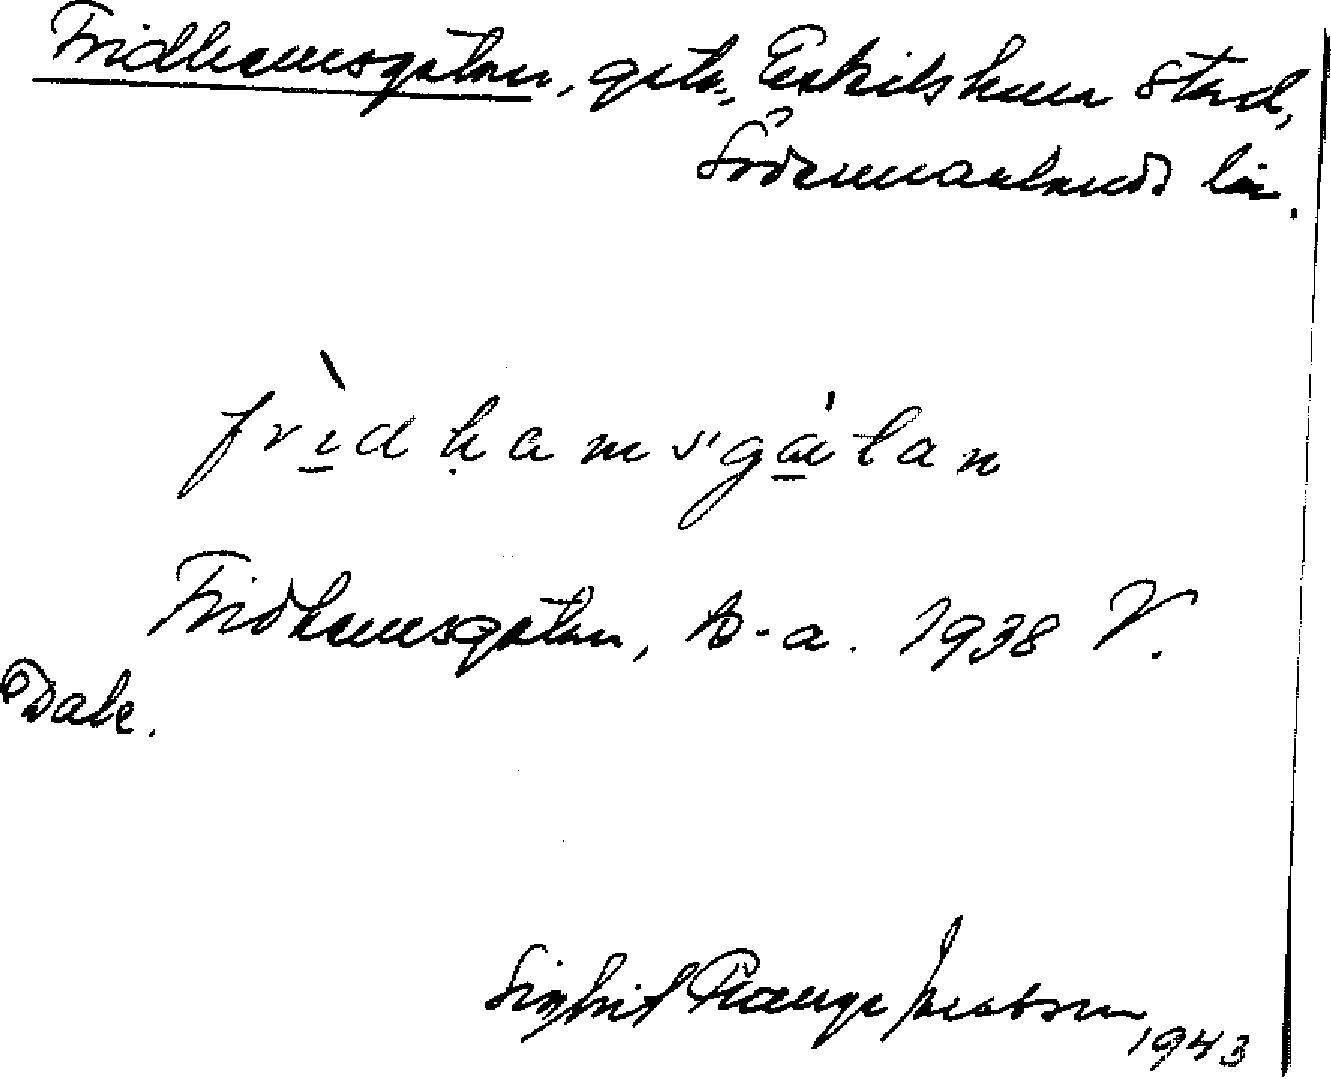 Fridhemsgatan, gata, Eskilstuna stad,
Södermanlands län.
frìdhamsgátan
Fridhemsgatan, b.a. 1938 V.
Dale.
Sigbrit Plænge Jacobson
1943